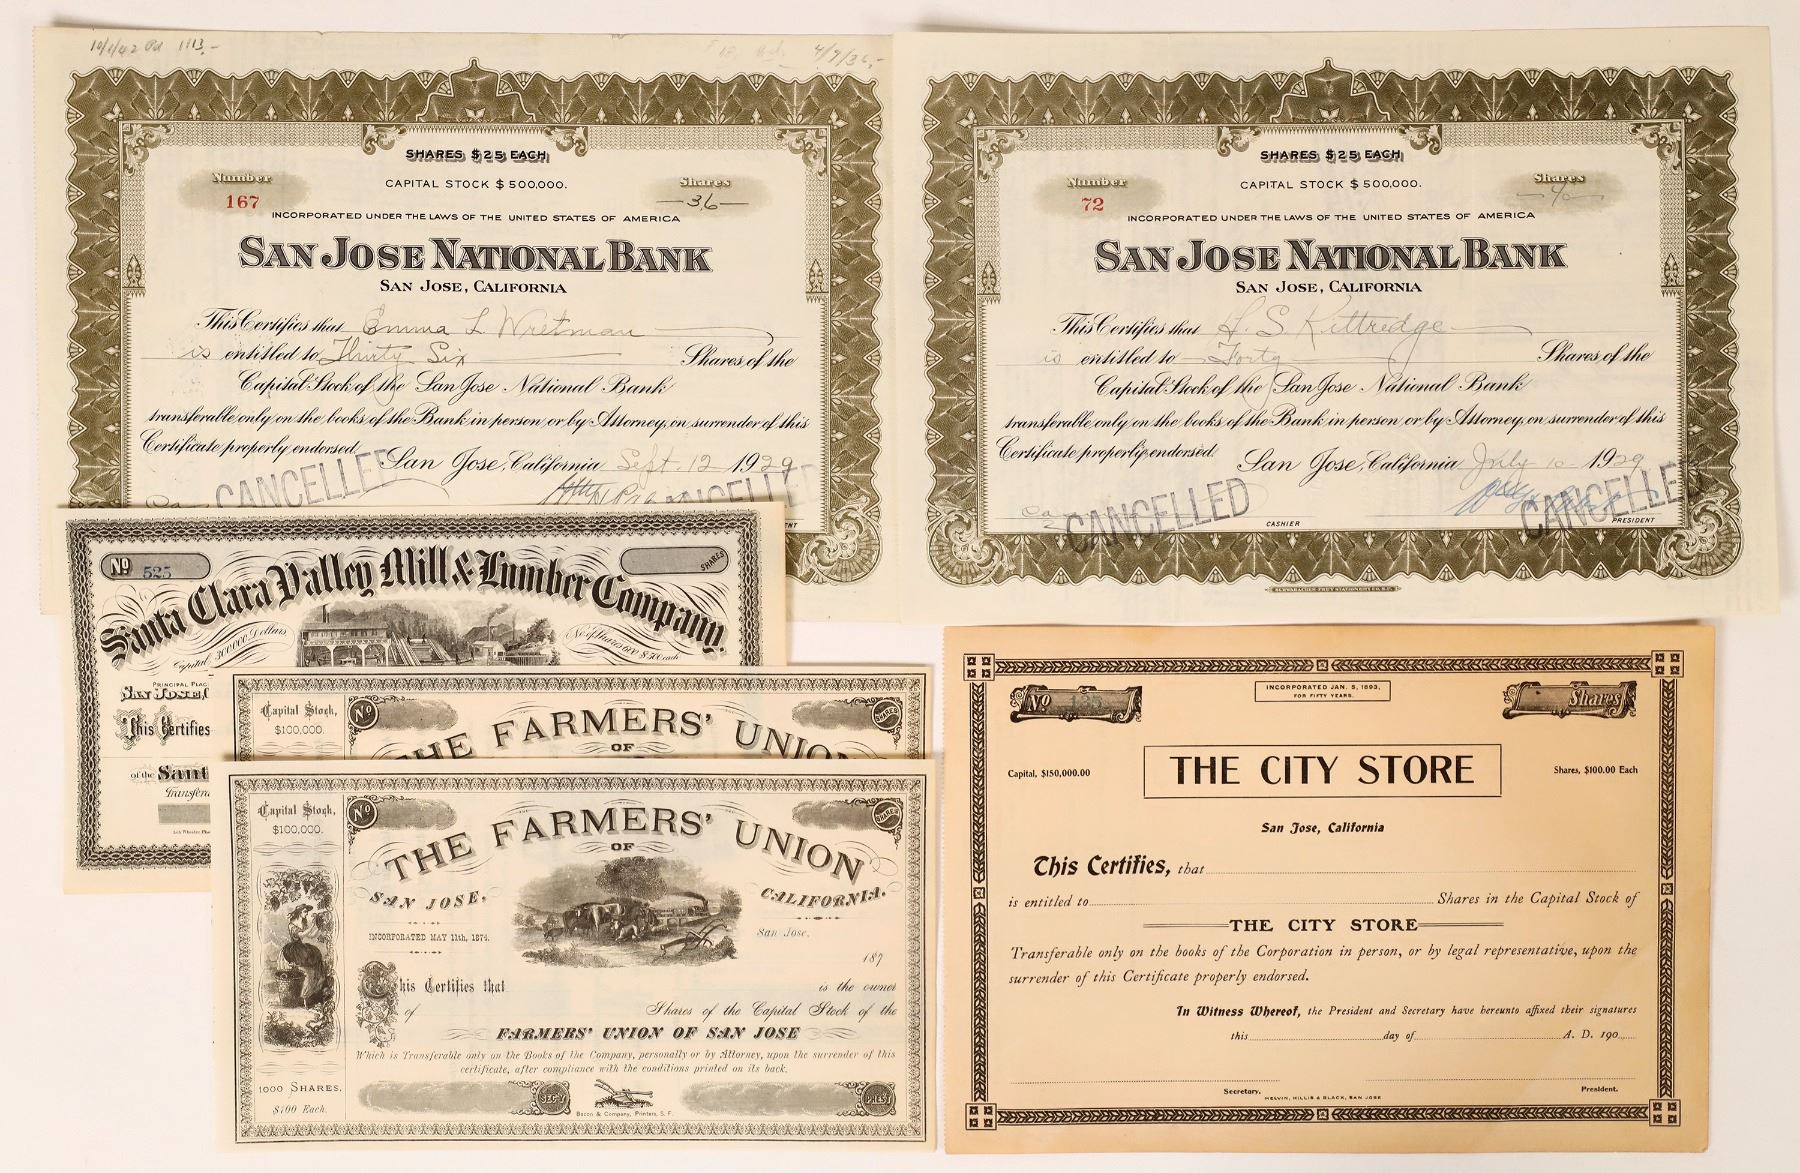 10/1/42 Pd 1113.-
4/9/36,-
SHARES $25 EACH
Number
167
CAPITAL STOCK $500,000.
Shares
36
INCORPORATED UNDER THE LAWS OF THE UNITED STATES OF AMERICA
SAN JOSE NATIONAL BANK
SAN JOSE, CALIFORNIA
This Certifies that Emma L Wretman
is entitled to Thirty Six Shares of the
Capital Stock of the San Jose National Bank
transferable only on the books of the Bank in person or by Attorney, on surrender of this
Certificate properly endorsed.
San Jose, California Sept. 12 1929
CANCELLED
CANCELLED
SHARES $25 EACH
Number
72
CAPITAL STOCK $500,000.
Shares
40
INCORPORATED UNDER THE LAWS OF THE UNITED STATES OF AMERICA
SAN JOSE NATIONAL BANK
SAN JOSE, CALIFORNIA
This Certifies that H. S. Kittredge
is entitled to Forty Shares of the
Capital Stock of the San Jose National Bank
transferable only on the books of the Bank in person or by Attorney, on surrender of this
Certificate properly endorsed.
San Jose, California July 10 1929
CANCELLED
CANCELLED
CASHIER
PRESIDENT
No 525
SHARES
Santa Clara Valley Mill & Lumber Company.
Capital, 300,000 Dollars
No of Shares 600 $500 each
PRINCIPAL PLAC
SAN JOSE,
This Certifies
of the Sant
Transfera
Capital Stock,
$100,000.
No
SHARES
THE FARMERS' UNION
OF
Capital Stock,
$100,000.
No
SHARES
THE FARMERS' UNION
OF
SAN JOSE, CALIFORNIA.
INCORPORATED MAY 11th, 1874.
San Jose,
187
This Certifies that is the owner
of Shares of the Capital Stock of the
FARMERS' UNION OF SAN JOSE
Which is Transferable only on the Books of the Company, personally or by Attorney, upon the surrender of this
certificate, after compliance with the conditions printed on its back.
1000 SHARES.
$100 Each.
SEC'Y
PREST
Bacon & Company, Printers, S. F.
No 135
INCORPORATED JAN. 5, 1893,
FOR FIFTY YEARS.
Shares
Capital, $150,000.00
THE CITY STORE
Shares, $100.00 Each
San Jose, California
This Certifies, that
is entitled to Shares in the Capital Stock of
THE CITY STORE
Transferable only on the books of the Corporation in person, or by legal representative, upon the
surrender of this Certificate properly endorsed.
In Witness Whereof, the President and Secretary have hereunto affixed their signatures
this day of A. D. 190
Secretary.
President.
MELVIN, HILLIS & BLACK, SAN JOSE